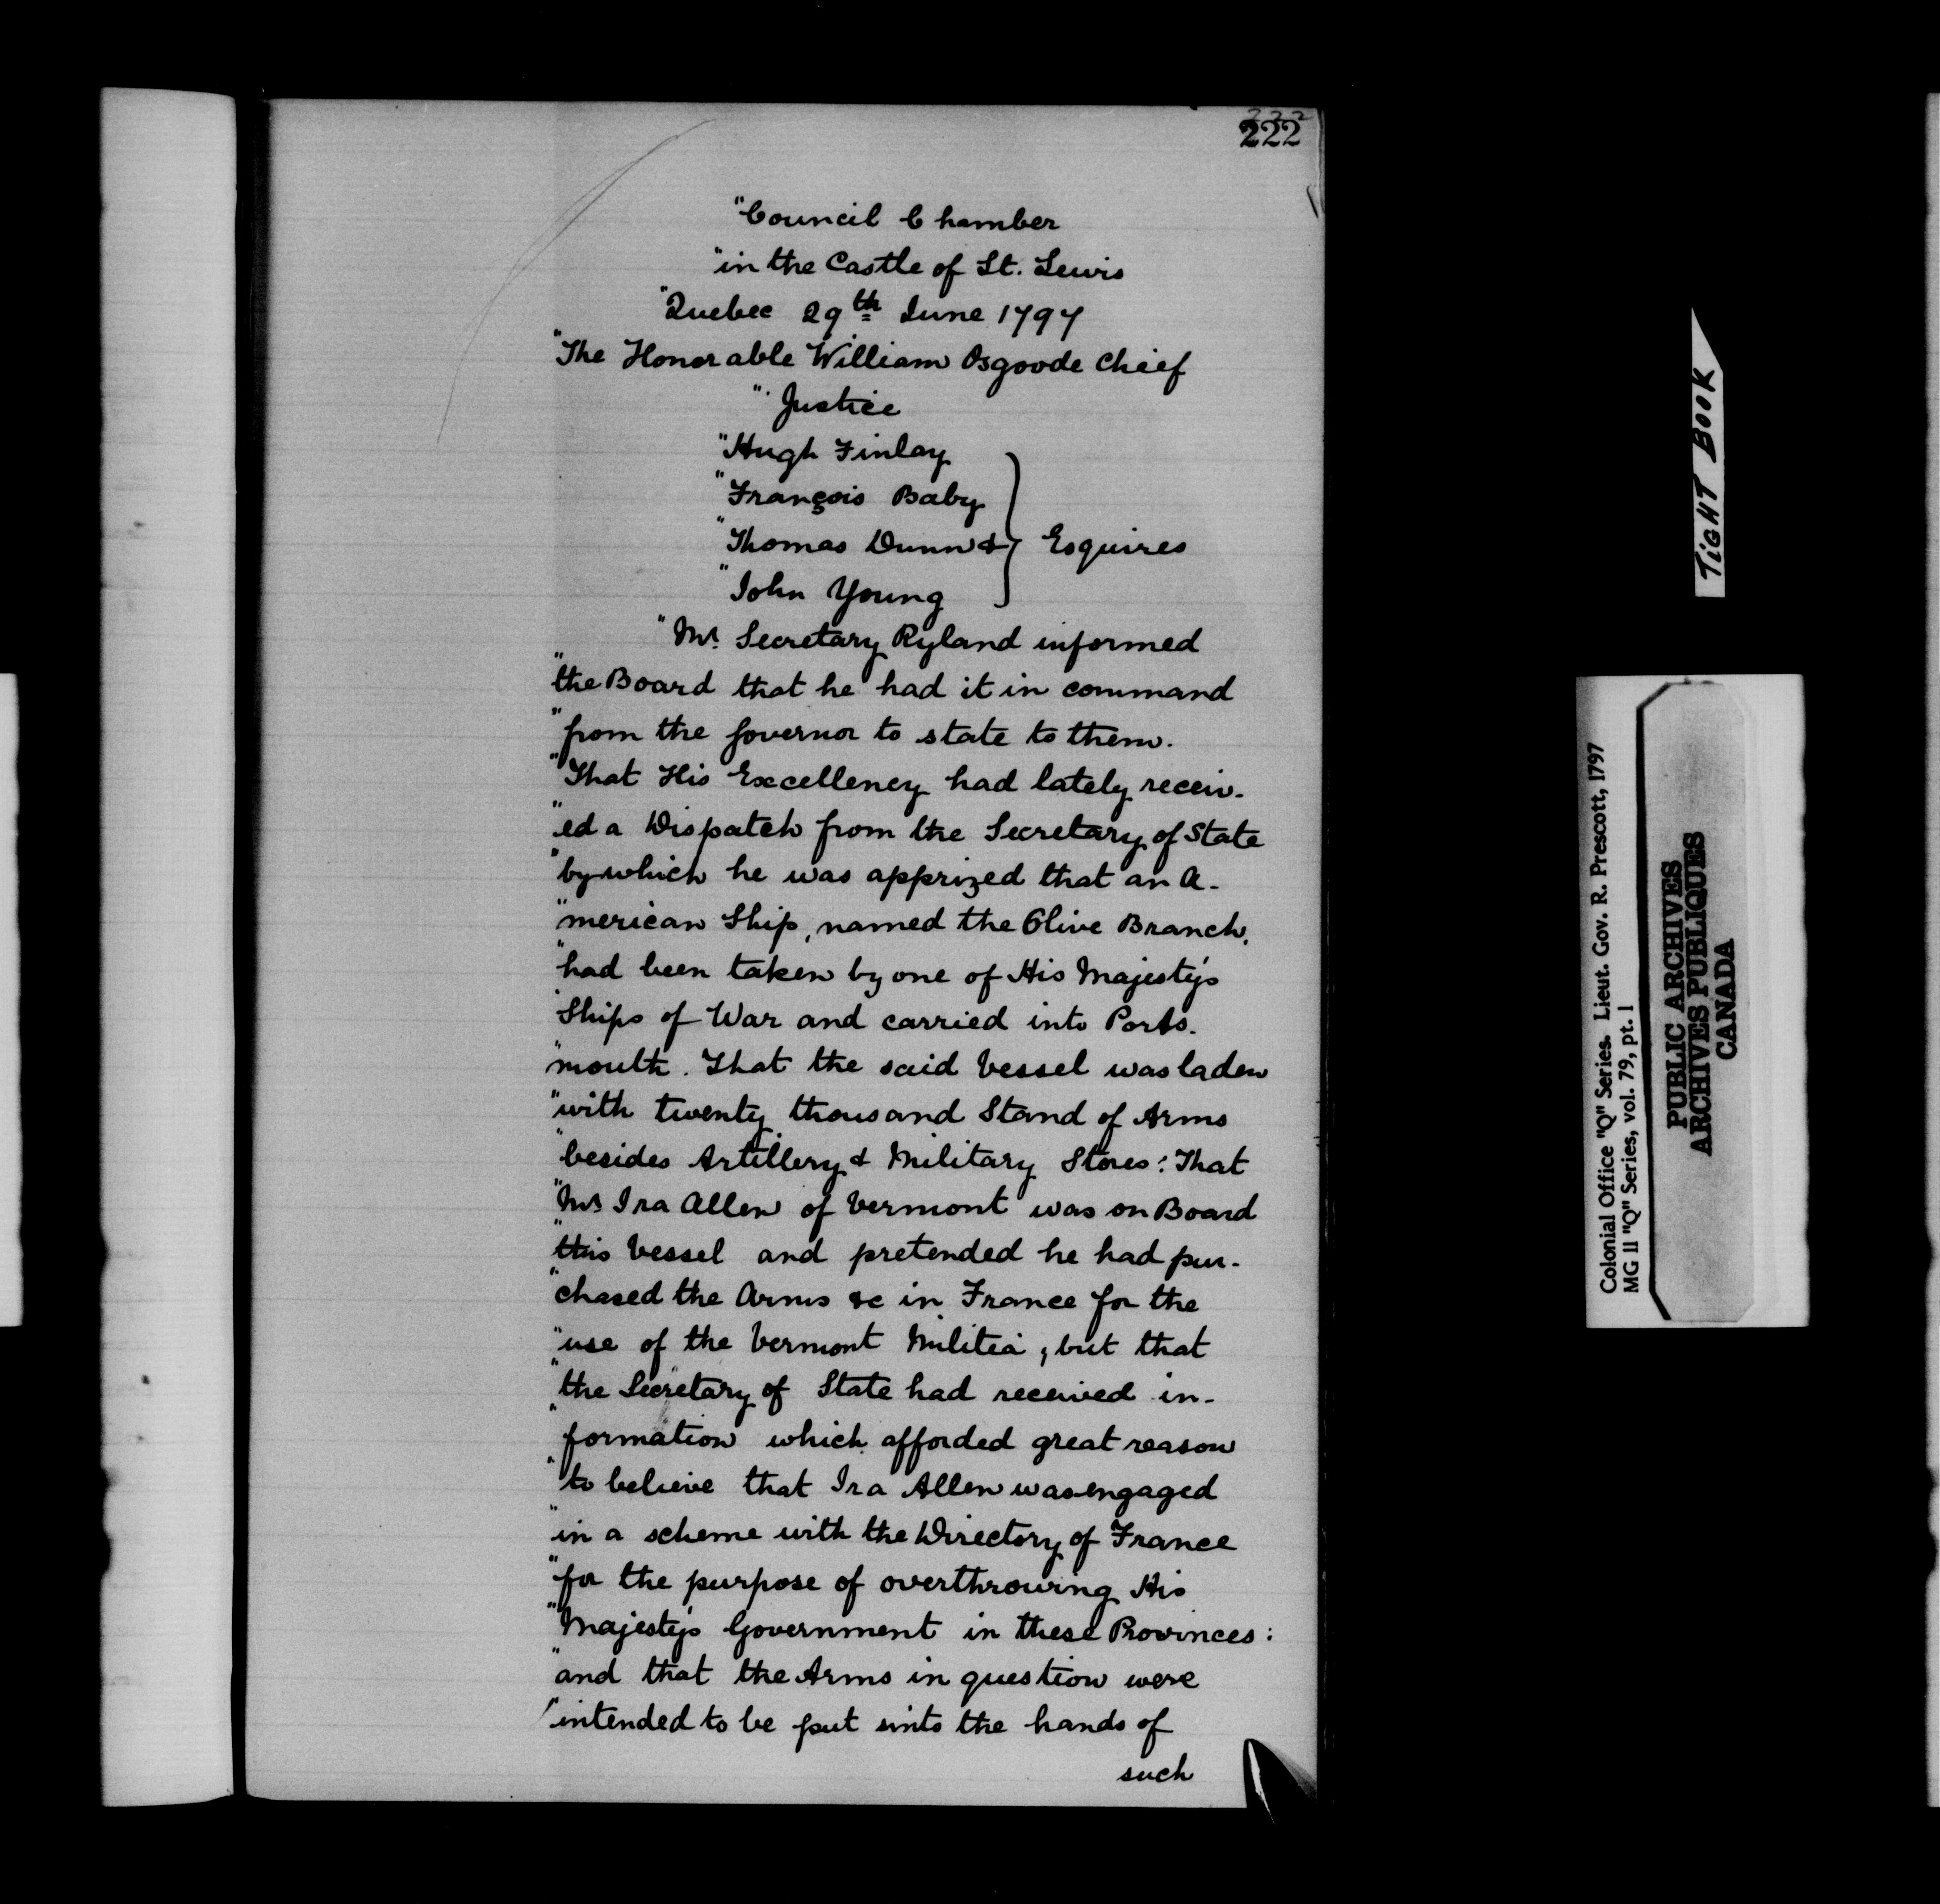 222
222
"Council Chamber
"in the Castle of St. Lewis
"Quebec 29th June 1797
"The Honorable William Osgoode Chief
" Justice
"Hugh Finlay
"François Baby
"Thomas Dunn & } Esquires
"John Young
"Mr. Secretary Ryland informed
"the Board that he had it in command
"from the Governor to state to them.
"That His Excellency had lately receiv-
"ed a Dispatch from the Secretary of State
"by which he was apprized that an A-
"merican Ship, named the Olive Branch,
"had been taken by one of His Majesty's
"Ships of War and carried into Ports-
"mouth. That the said Vessel was laden
"with twenty thousand Stand of Arms
"besides Artillery & Military Stores: That
"Mr Ira Allen of Vermont was on Board
"this Vessel and pretended he had pur-
"chased the Arms &c in France for the
"use of the Vermont Militia, but that
"the Secretary of State had received in-
"formation which afforded great reason
"to believe that Ira Allen was engaged
"in a scheme with the Directory of France
"for the purpose of overthrowing His
"Majesty's Government in these Provinces:
"and that the Arms in question were
"intended to be put into the hands of
such
TiGHT BOOK
Colonial Office "Q" Series. Lieut. Gov. R. Prescott, 1797
MG 11 "Q" Series, vol. 79, pt. 1
PUBLIC ARCHIVES
ARCHIVES PUBLIQUES
CANADA